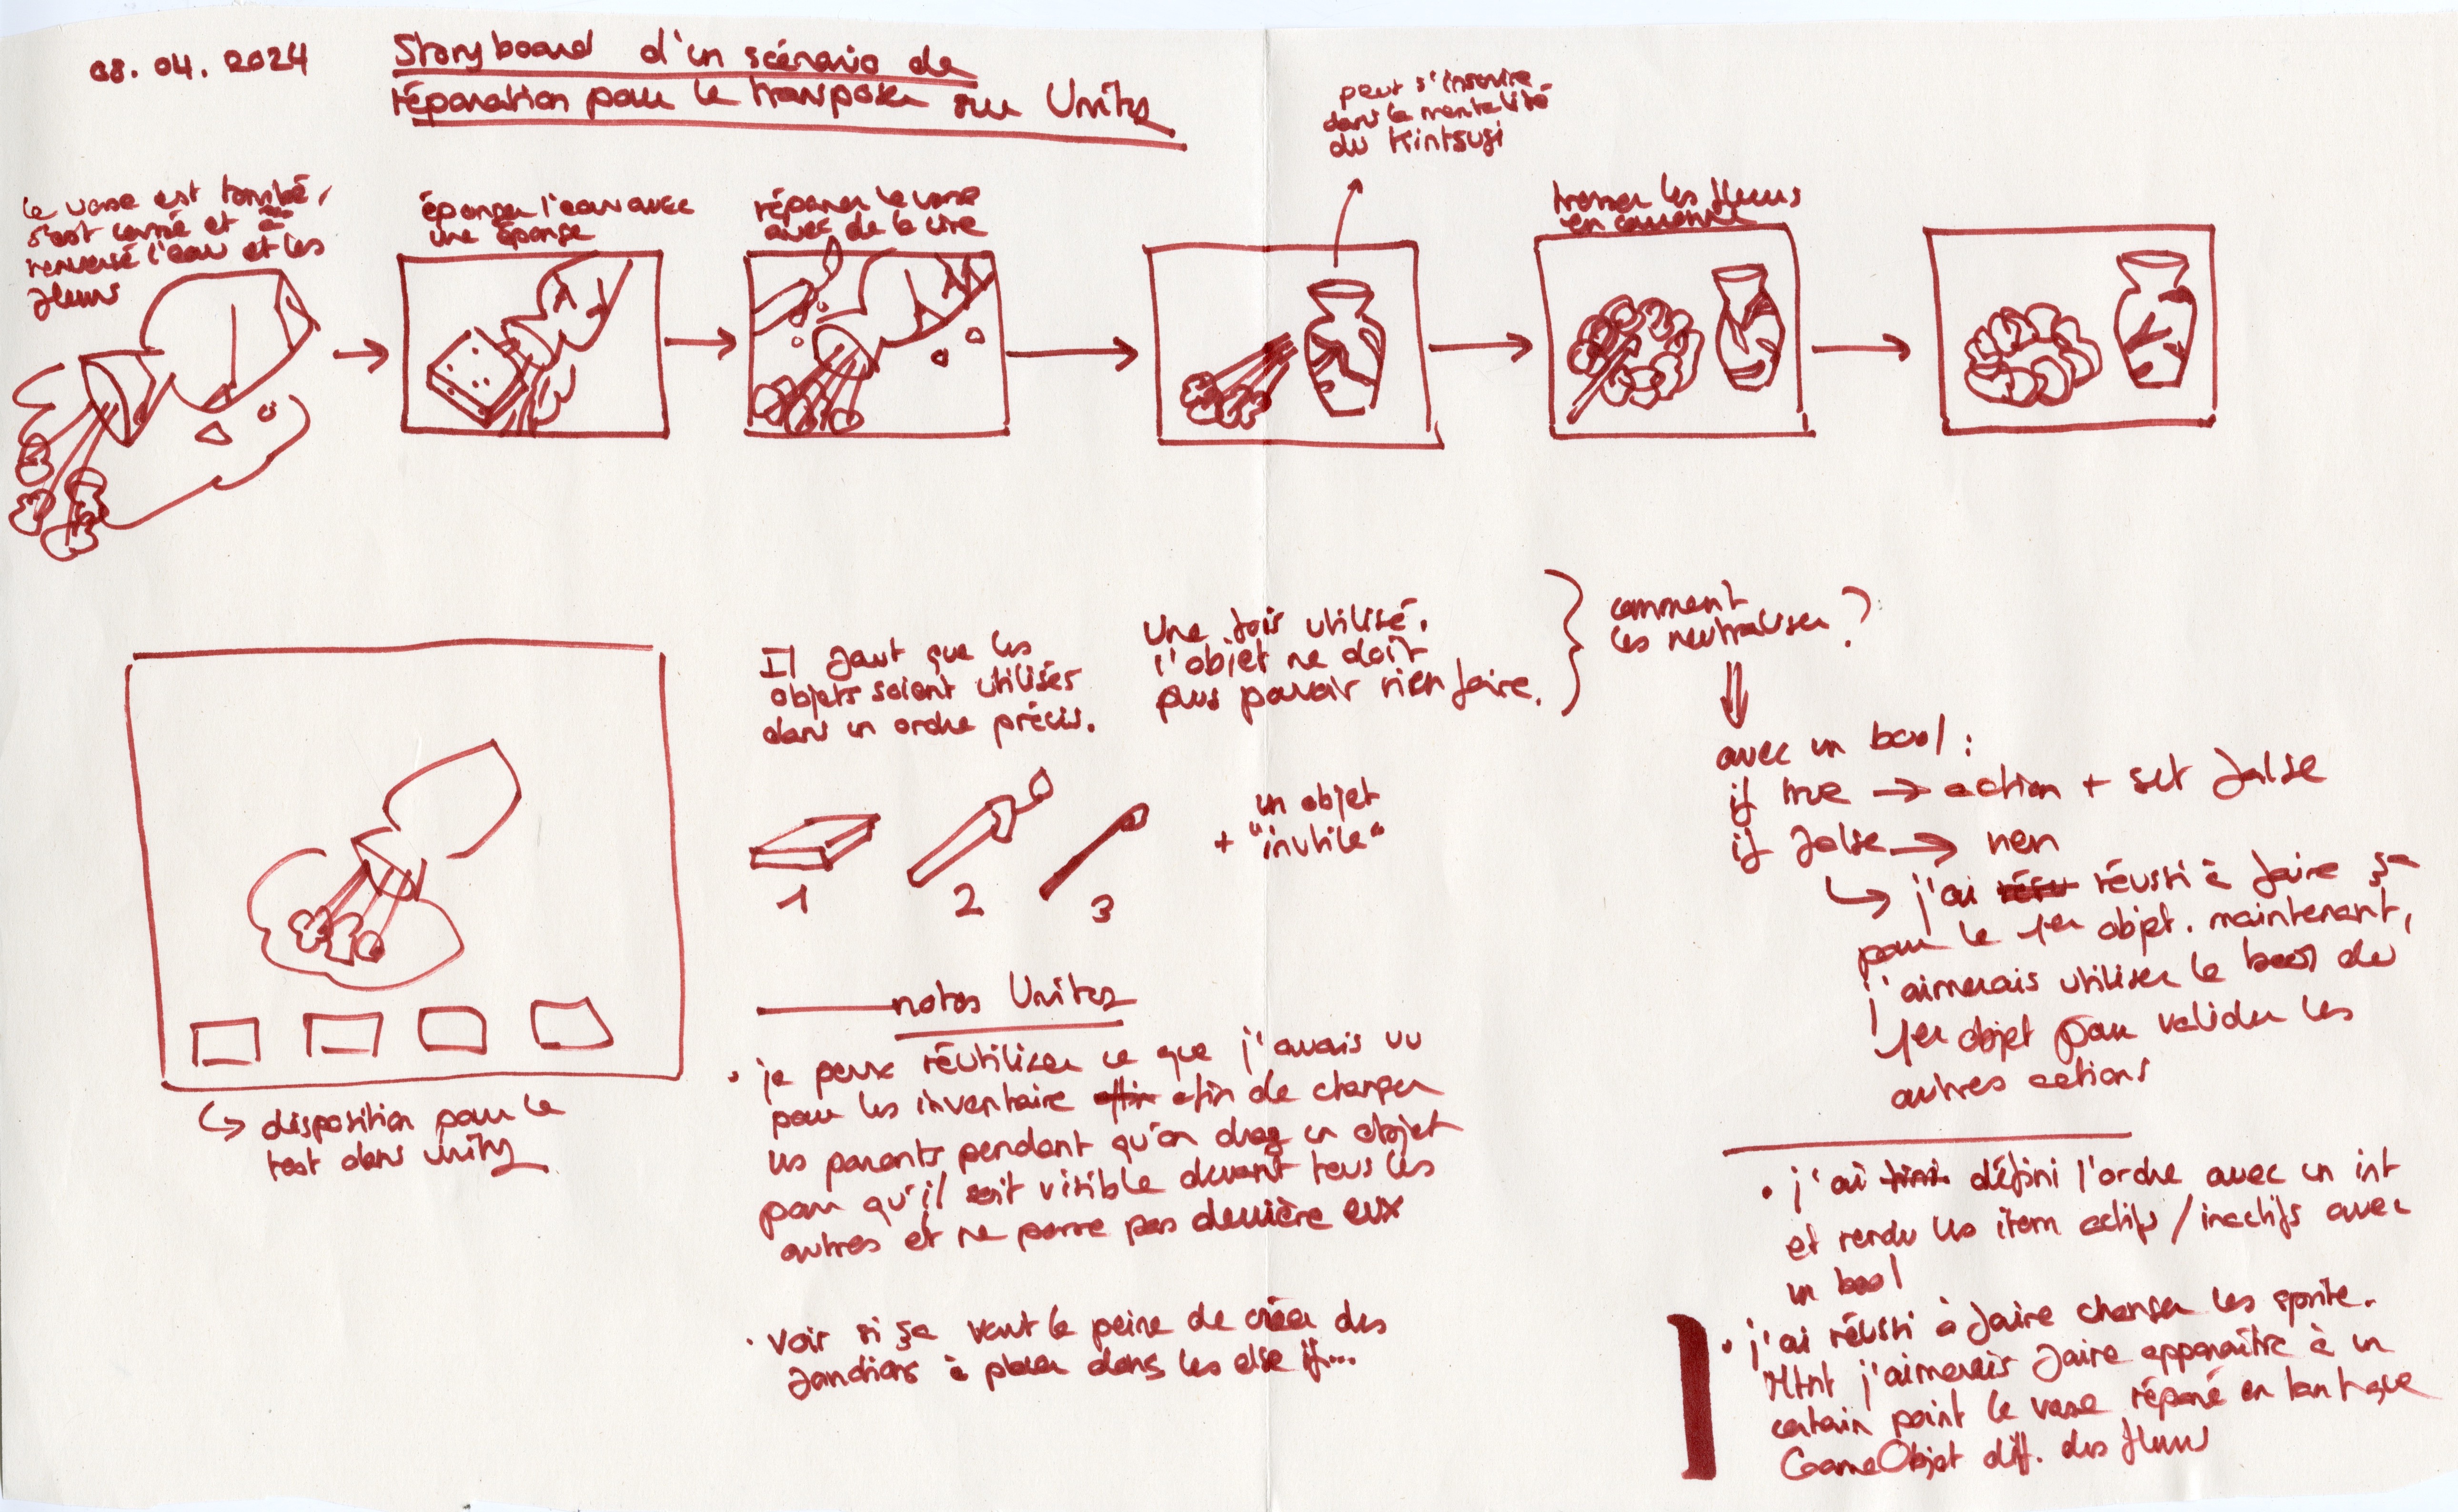 08.04.2024
Storyboard d'un scénario de
réparation pour le transposer sur Unity
le vase est tombé,
s'est cassé et a
renversé l'eau et les
fleurs
éponger l'eau avec
une éponge
réparer le vase
avec de la cire
peut s'inscrire
dans la mentalité
du Kintsugi
tresser les fleurs
en couronne
disposition pour le
test dans unity
Il faut que les
objets soient utilisés
dans un ordre précis.
Une fois utilisé,
l'objet ne doit
plus pouvoir rien faire.
comment
les neutraliser ?
1
2
3
un objet
+ "inutile"
avec un bool :
if true → action + set false
if false → rien
j'ai réussi à faire ça
pour le 1er objet. maintenant,
j'aimerais utiliser le bool du
1er objet pour valider les
autres actions
notes Unity
• je peux réutiliser ce que j'avais vu
pour les inventaire afin de changer
les parents pendant qu'on drag un objet
pour qu'il soit visible devant tous les
autres et ne passe pas derrière eux
• voir si ça vaut la peine de créer des
fonctions à placer dans les else if...
• j'ai défini l'ordre avec un int
et rendu les item actifs/inactifs avec
un bool
• j'ai réussi à faire changer les sprite.
Mtnt j'aimerais faire apparaître à un
certain point le vase réparé en tant que
GameObjet diff. des fleurs